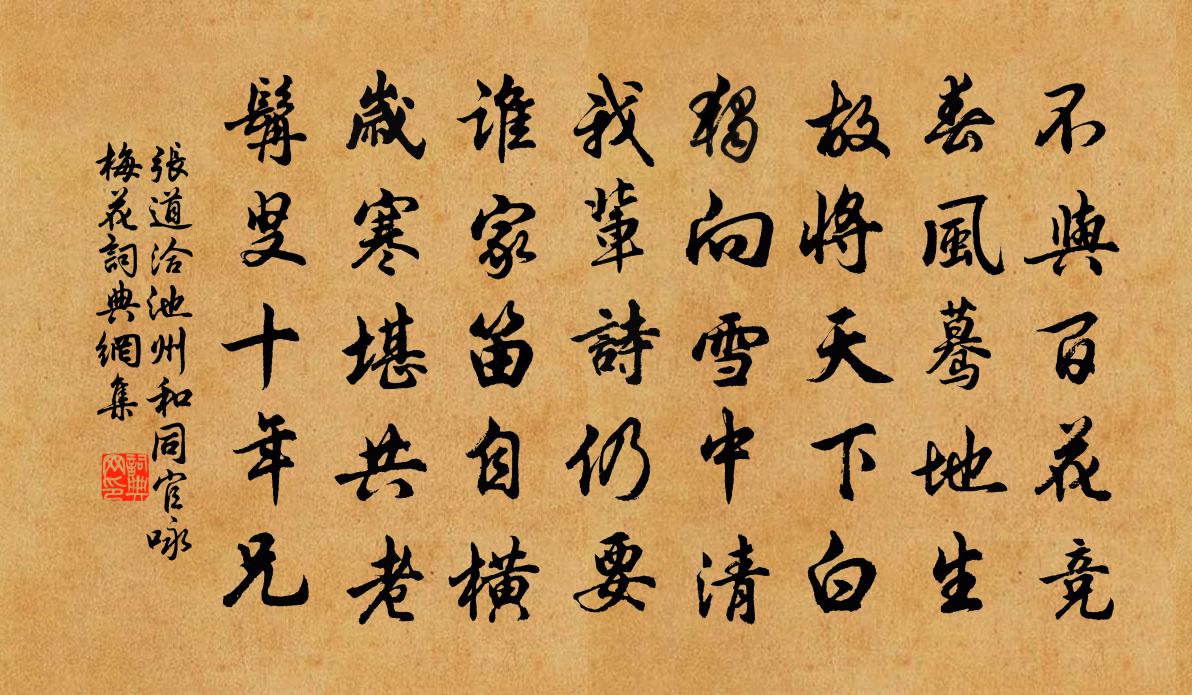 不與百花競
春風驀地生
故將天下白
獨向雪中清
我輩詩仍要
誰家笛自橫
歲寒堪共老
髯叟十年兄
張道洽池州和同官咏
梅花詞典網集
詞典网印